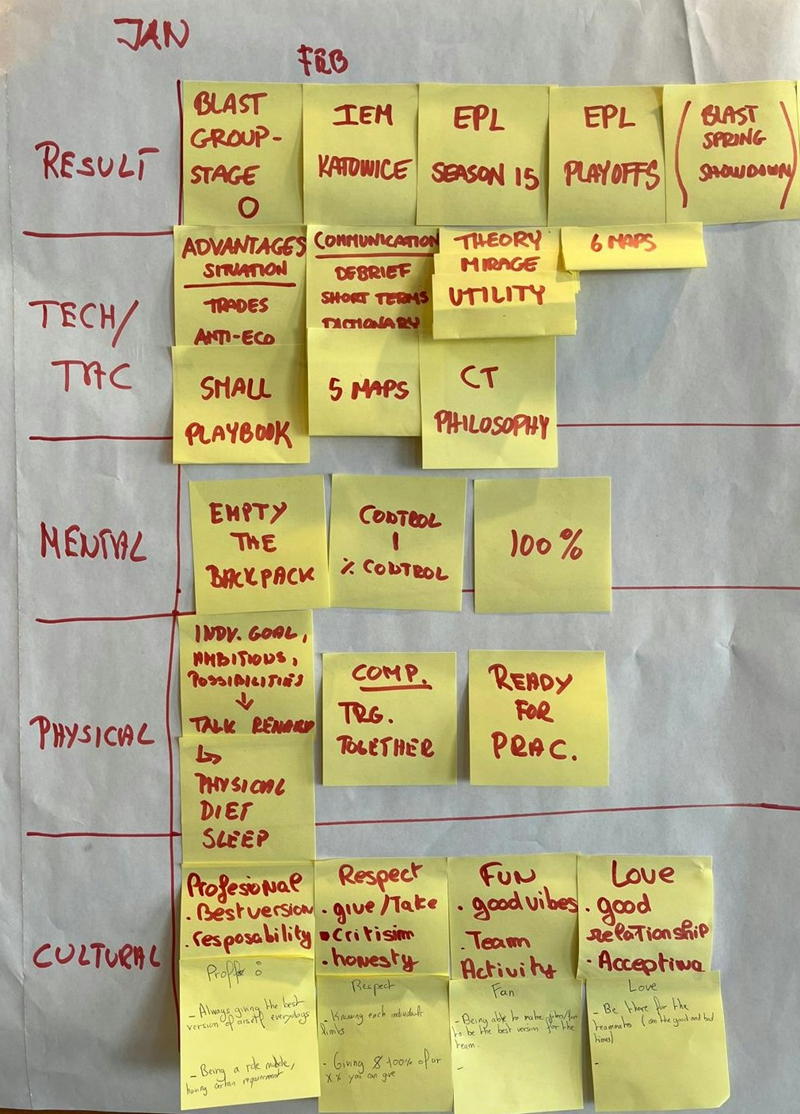 JAN
FEB
RESULT
BLAST
GROUP-
STAGE
O
IEM
KATOWICE
EPL
SEASON 15
EPL
PLAYOFFS
(BLAST
SPRING
SHOWDOWN)
TECH/
TAC
ADVANTAGES
SITUATION
TRADES
ANTI-ECO
SMALL
PLAYBOOK
COMMUNICATION
DEBRIEF
SHORT TERMS
DICTIONARY
5 MAPS
THEORY
MIRAGE
UTILITY
CT
PHILOSOPHY
6 MAPS
MENTAL
EMPTY
THE
BACKPACK
CONTROL
% CONTROL
100%
PHYSICAL
INDV. GOAL,
AMBITIONS,
POSSIBILITIES
↓
TALK RENARD
↳
PHYSICAL
DIET
SLEEP
COMP.
TRG.
TOGETHER
READY
FOR
PRAC.
CULTURAL
Profesional
. Best version
. resposability
Respect
. give/Take
. Critisim
. honesty
FUN
. good vibes
. Team
Activity
Love
. good
relationship
. Accepting
- Always giving the best
version of
- Being a role
Respect
- Knowing each individual
limits
- Giving 100% of
you can give
Fan
- Being able to make
to be the best version for the
team.
-
Love
- Be there for the
teammates (on the good and bad
times)
-